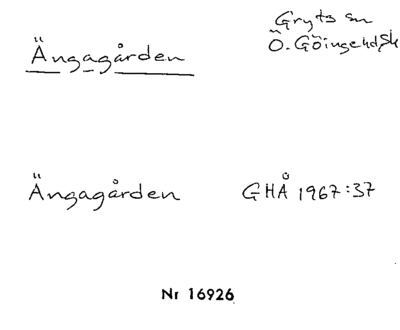 Ängagården
Gryts sn
Ö. Göinge hd, Sk
Ängagården GHÅ 1967:37
Nr 16926